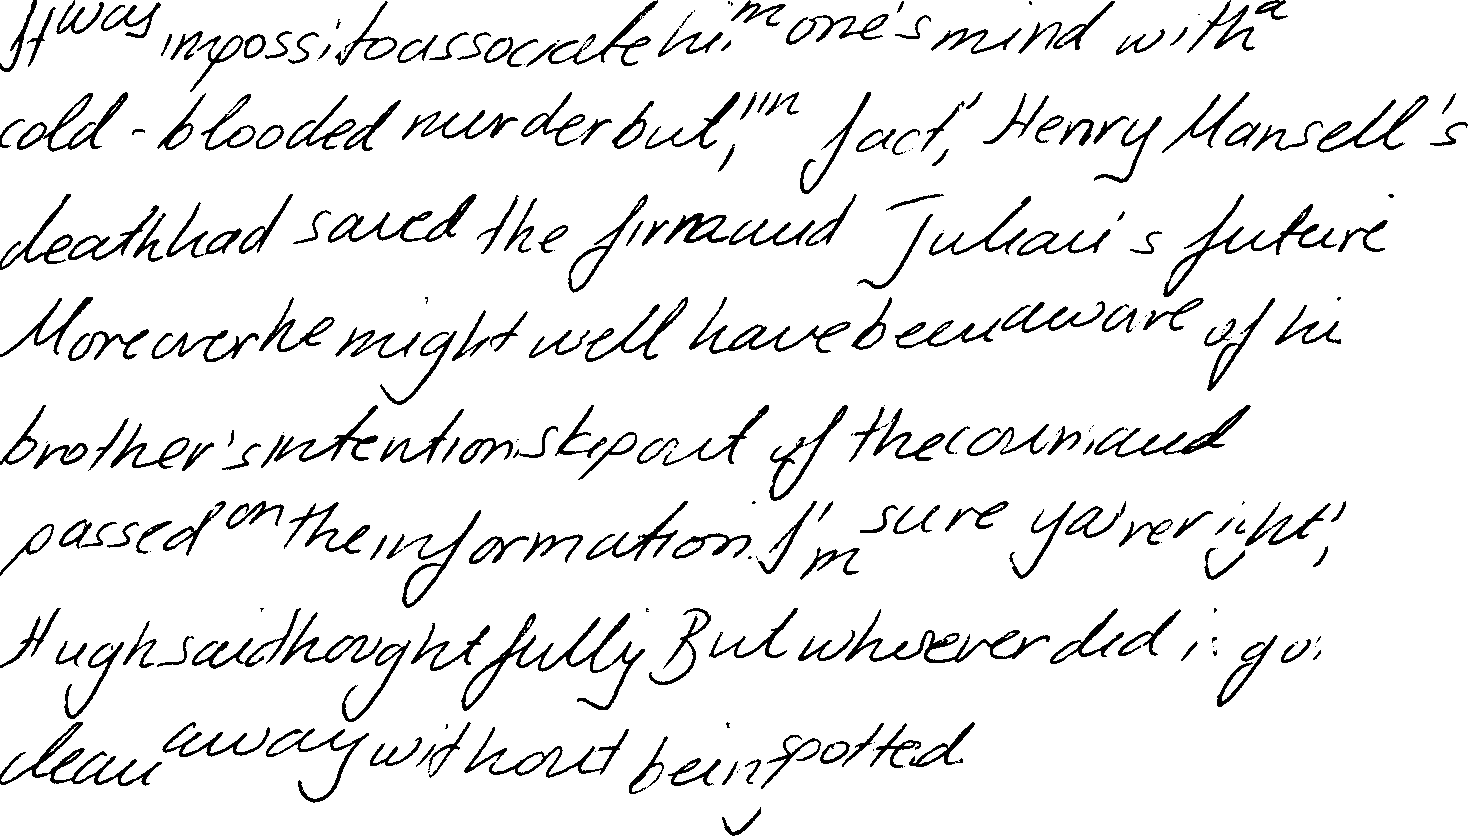 It was impossi to associate him one's mind with a
cold-blooded murder but, "in fact," Henry Mansell's
death had saved the firm and Julian's future
Moreover he might well have been aware of hi
brother's intentions kep out of the coun and
passed on the information. I'm sure you're right,'
Hugh said thoughtfully But whoever did i go
clean away without being spotted.